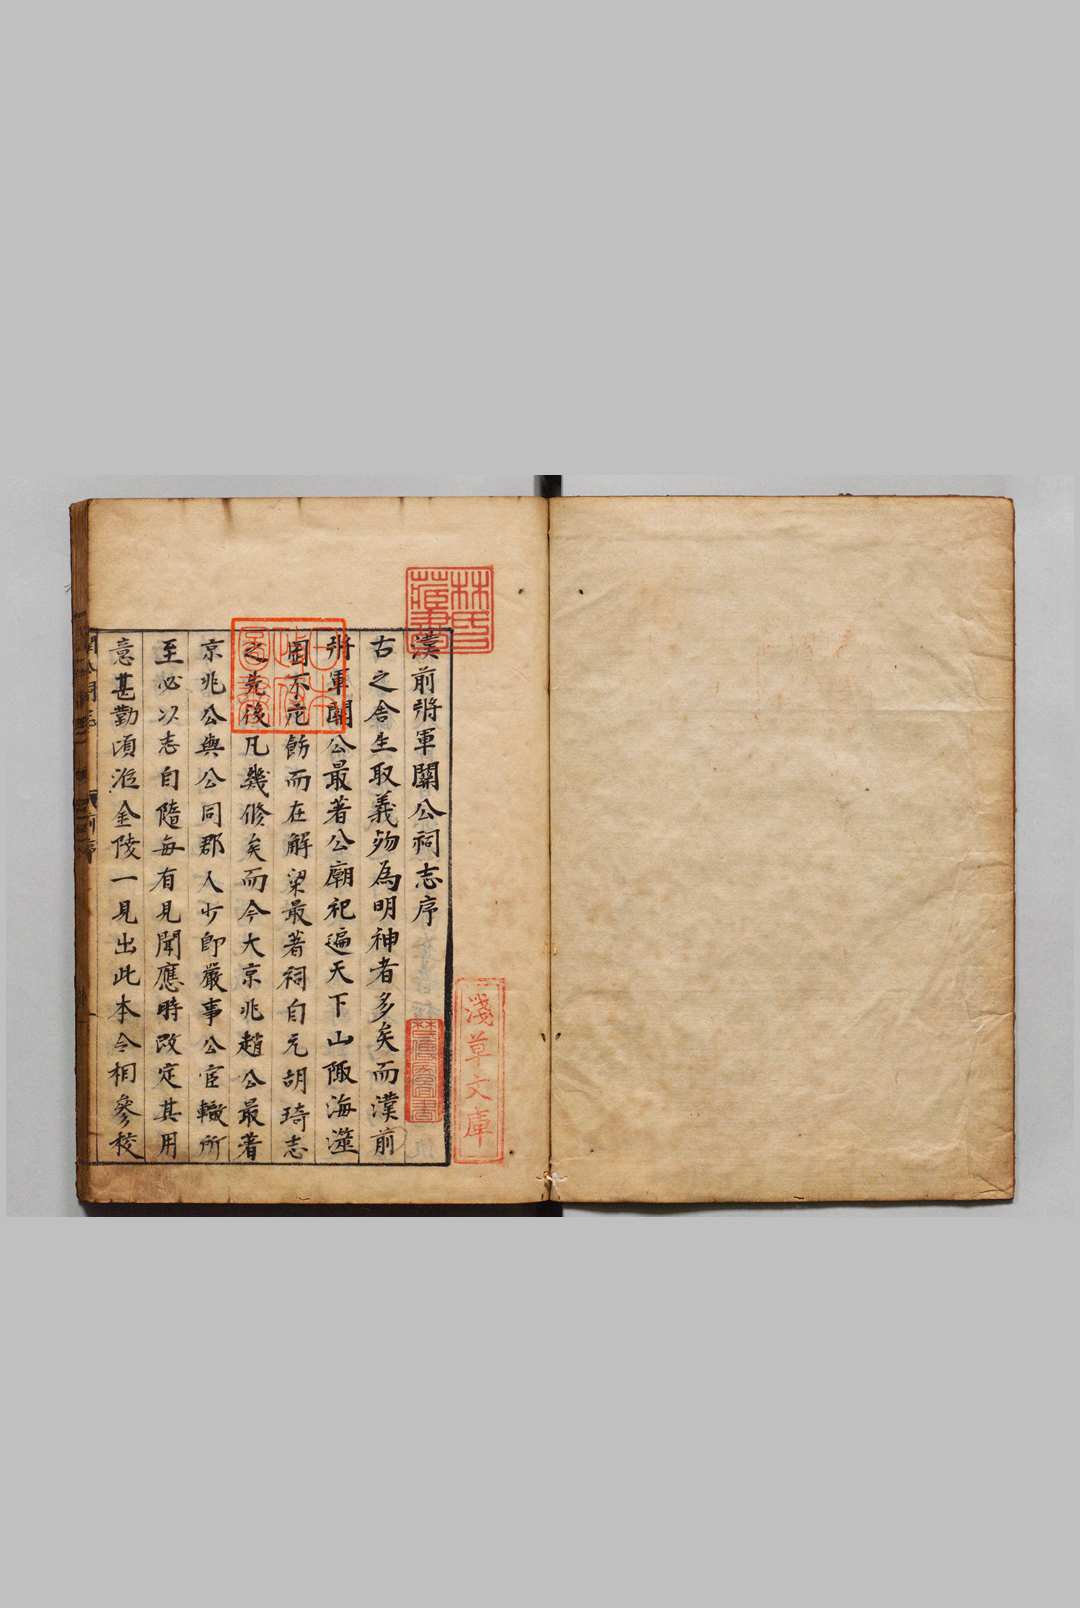 漢前將軍關公祠志序
古之舍生取義歿為明神者多矣而漢前
將軍關公最著公廟祀遍天下山陬海澨
罔不庀飭而在解梁最著祠自元胡琦志
之莞後凡幾修矣而今大京兆趙公最著
京兆公與公同郡人少即嚴事公宦轍所
至必以志自隨每有見聞應時改定其用
意甚勤頃涖金陵一見出此本令相參校
林氏藏書
日本政府圖書
淺草文庫